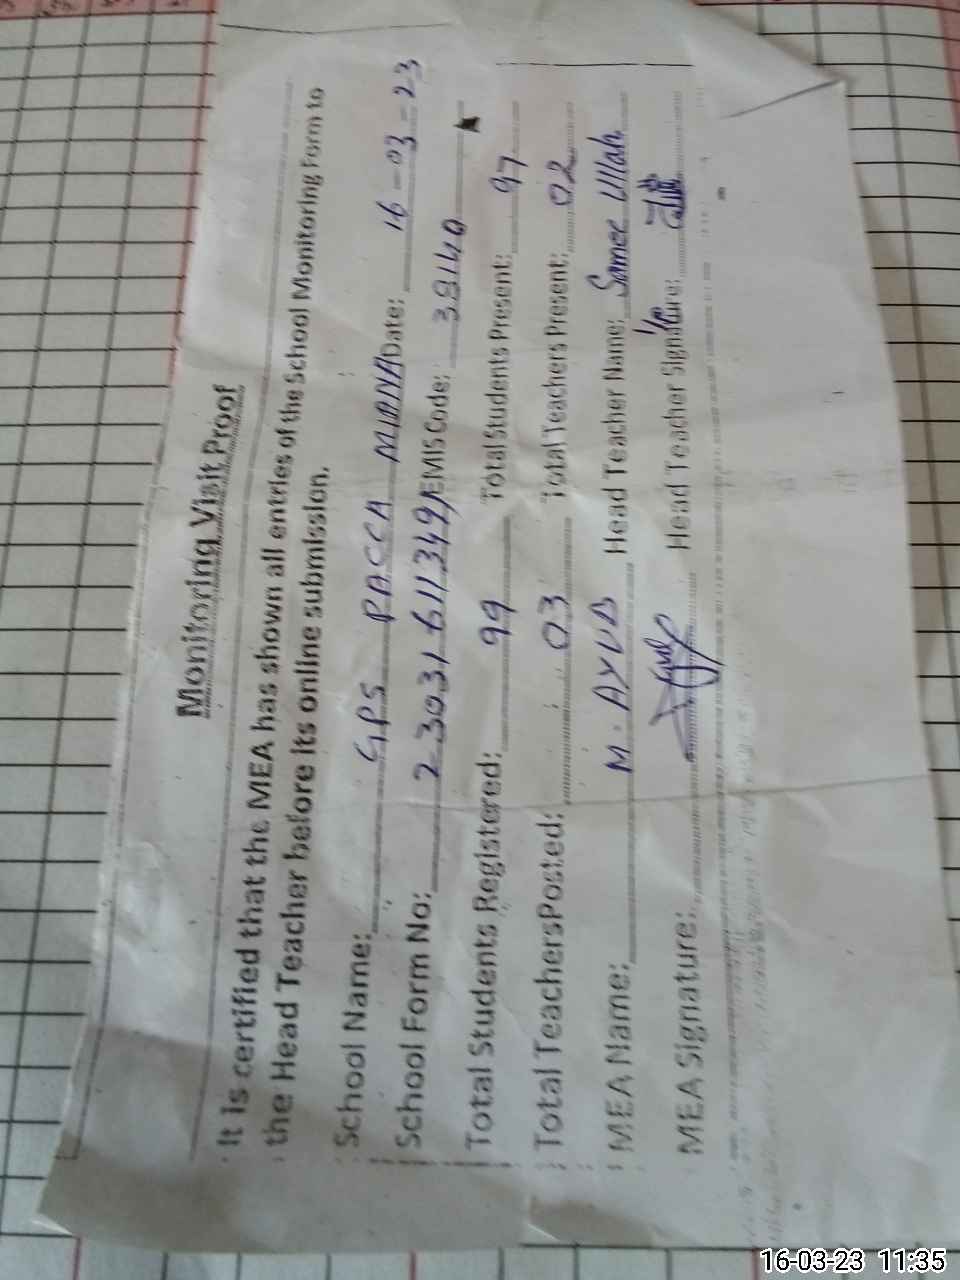 Monitoring Visit Proof
It is certified that the MEA has shown all entries of the School Monitoring Form to
the Head Teacher before its online submission.
School Name: GPS PACCA MIANA Date: 16-03-23
School Form No: 23031611349 EMIS Code: 38140
Total Students Registered: 99 Total Students Present: 97
Total TeachersPosted: 03 Total Teachers Present: 02
MEA Name: M. AYUB Head Teacher Name: Samee Ullah
MEA Signature: Head Teacher Signature:
16-03-23 11:35